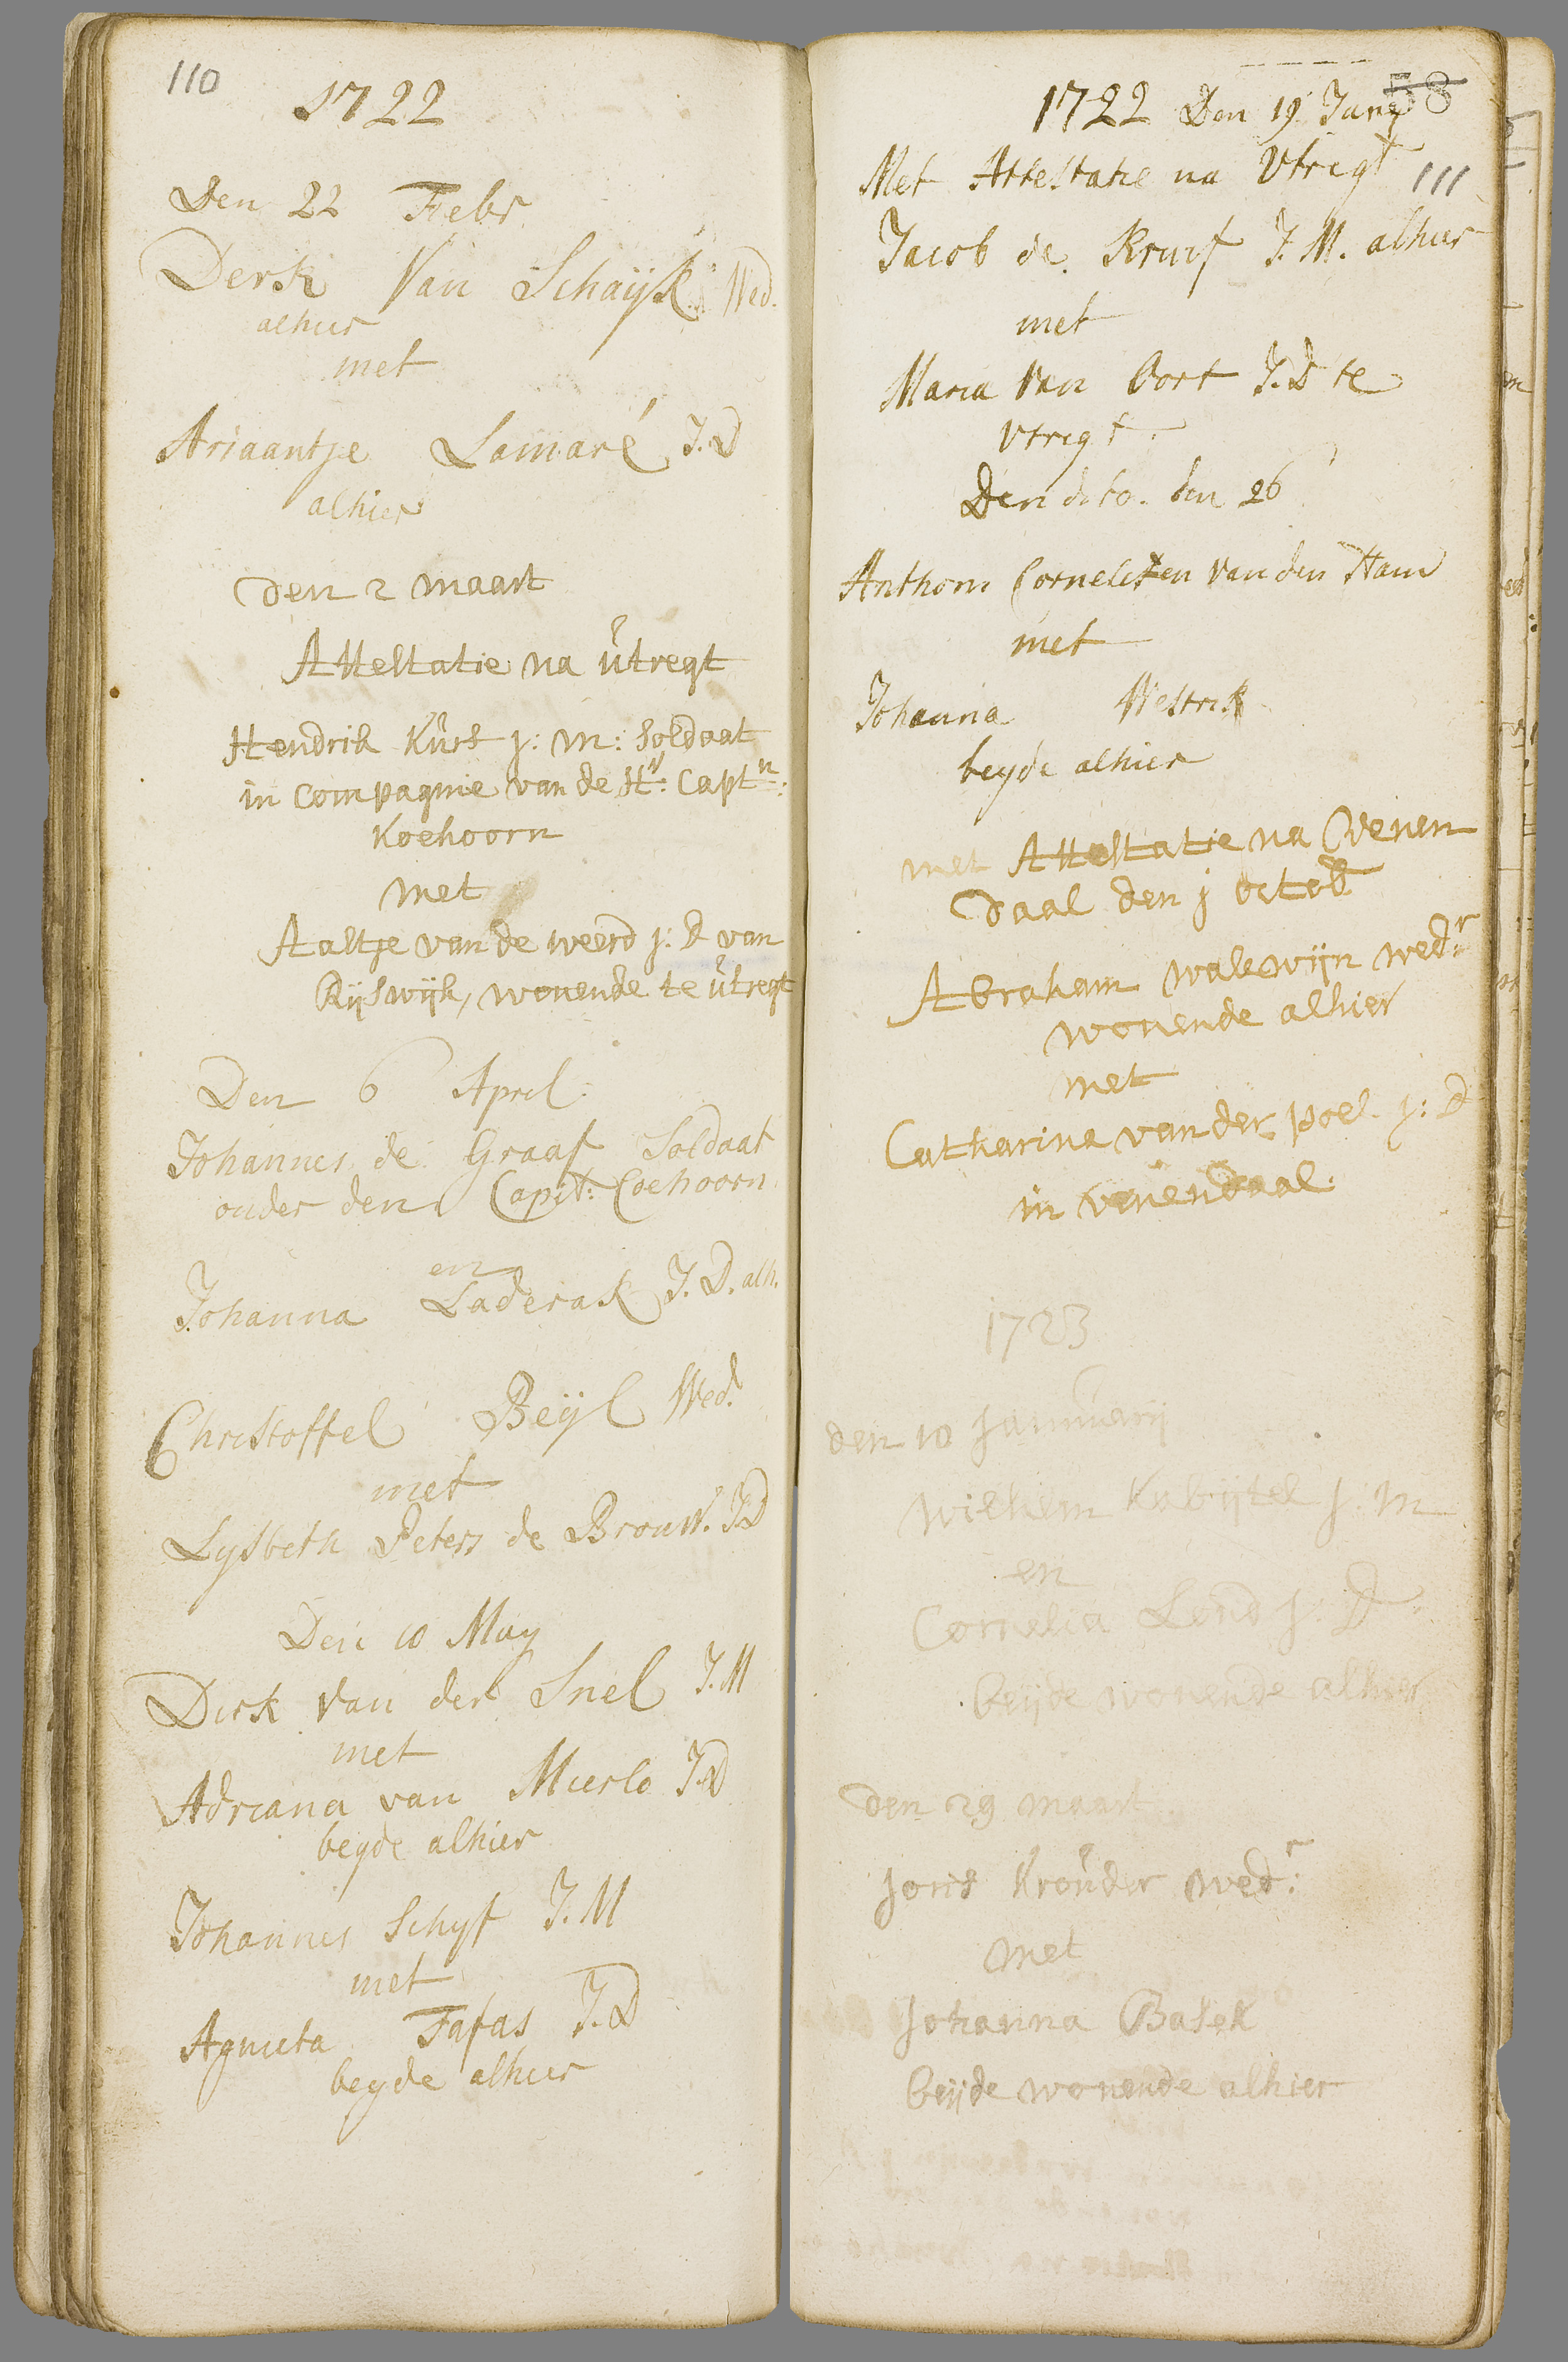 110
1722
Den 22 Febr.
Derk Van Schayk Wed.
alhier
met
Ariaantje Lamaré J.D
alhier
Den 2 maart
Attestatie na ùtregt
Hendrik Kùrs j: m: soldaat
in Compagnie van de Hr: Captn:
Koehoorn
met
Aaltje van de weerd j: D van
Rijswijk, wonende te ùtregt
Den 6 April.
Johannes de Graaf Soldaat
onder den Capit: Coehoorn
en
Johanna Laderak J.D. alh.
Christoffel Beyl Wed.
met
Lysbeth Peters de Brouw. JD
Den 10 May
Dirk van der Snel J.M
met
Adriana van Mierlo J.D
beyde alhier
Johannes Schyf J.M
met
Agnieta Fafas J.D
beyde alhier
58
1722 Den 19 Juny
Met Attestatie na Utregt
111
Jacob de Kruif J.M. alhier
met
Maria Van Oort J.D te
Utregt.
Den dito. den 26
Anthoni Cornelissen van den Ham
met
Johanna Westrik
beyde alhier
met Attestatie na Venen
daal den j octob
Abraham walewijn wedr
wonende alhier
met
Catharina van der poel j: D
in venendaal.
1723
den 10 Januuarij
Wilhem Kabijtel j: m
en
Cornelia Lend j: D
beijde wonende alhier
den 29 maart
Joris Kroùder wedr:
met
Johanna Basek
beijde wonende alhier